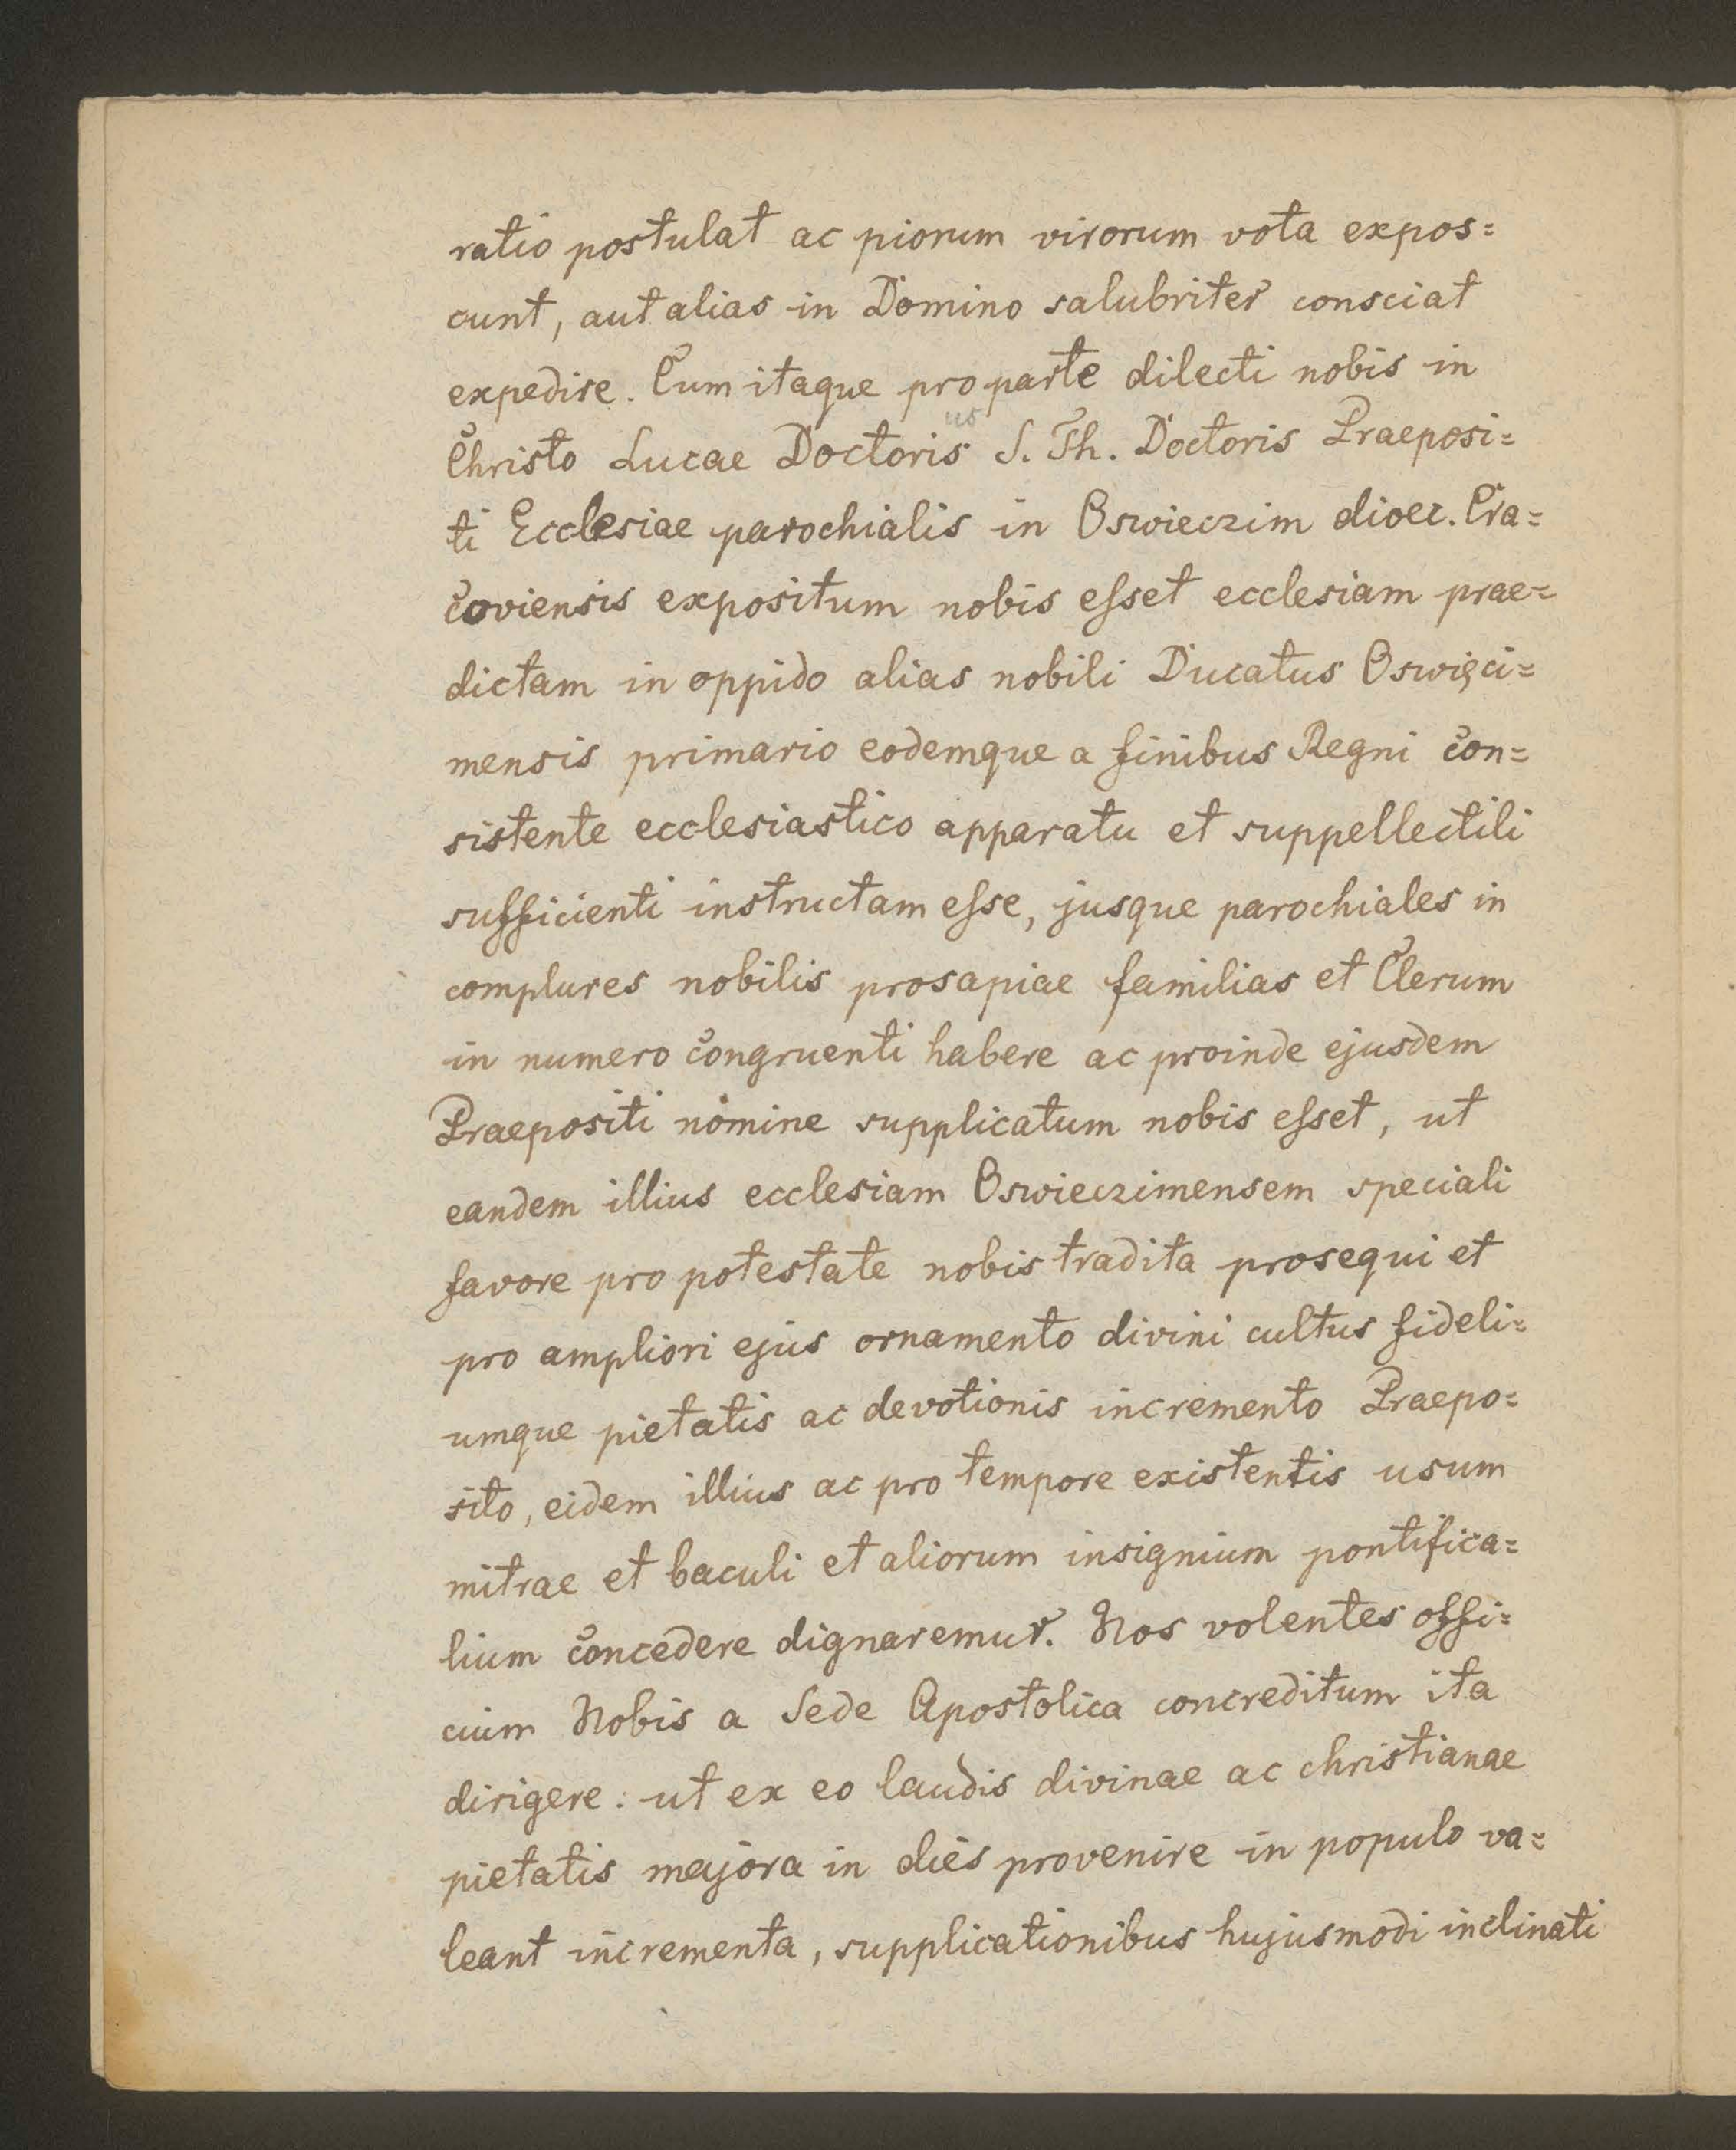 ratio postulat ac piorum virorum vota expos=
cunt, aut alias in Domino salubriter consciat
expedire. Cum itaque pro parte dilecti nobis in
us
Christo Lucae Doctoris S. Th. Doctoris Praeposi=
ti Ecclesiae parochialis in Oswieczim dioec. Cra=
coviensis expositum nobis esset ecclesiam prae=
dictam in oppido alias nobili Ducatus Oswięci=
mensis primario eodemque a finibus Regni con=
sistente ecclesiastico apparatu et suppellectili
sufficienti instructam esse, jusque parochiales in
complures nobilis prosapiae familias et Clerum
in numero congruenti habere ac proinde ejusdem
Praepositi nomine supplicatum nobis esset, ut
eandem illius ecclesiam Oswieczimensem speciali
favore pro potestate nobis tradita prosequi et
pro ampliori ejus ornamento divini cultus fideli=
umque pietatis ac devotionis incremento Praepo=
sito, eidem illius ac pro tempore existentis usum
mitrae et baculi et aliorum insignium pontifica=
lium concedere dignaremur. Nos volentes offi=
cium Nobis a Sede Apostolica concreditum ita
dirigere: ut ex eo laudis divinae ac christianae
pietatis majora in dies provenire in populo va=
leant incrementa, supplicationibus hujusmodi inclinati